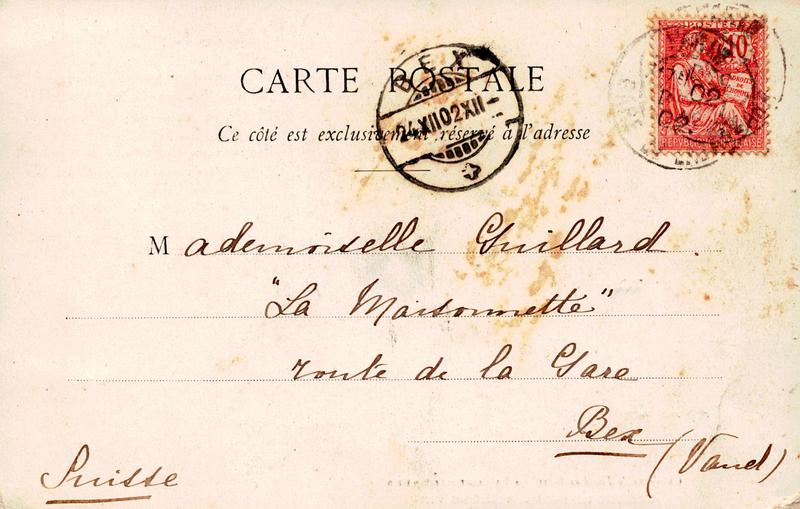 POSTES
10
DROITS DE L'HOMME
REPUBLIQUE FRANÇAISE
CARTE POSTALE
BEX
24 XII 02 XII
Ce côté est exclusivement réservé à l'adresse
Mademoiselle Guillard
"La Maisonnette"
route de la Gare
Bex
(Vaud)
Suisse